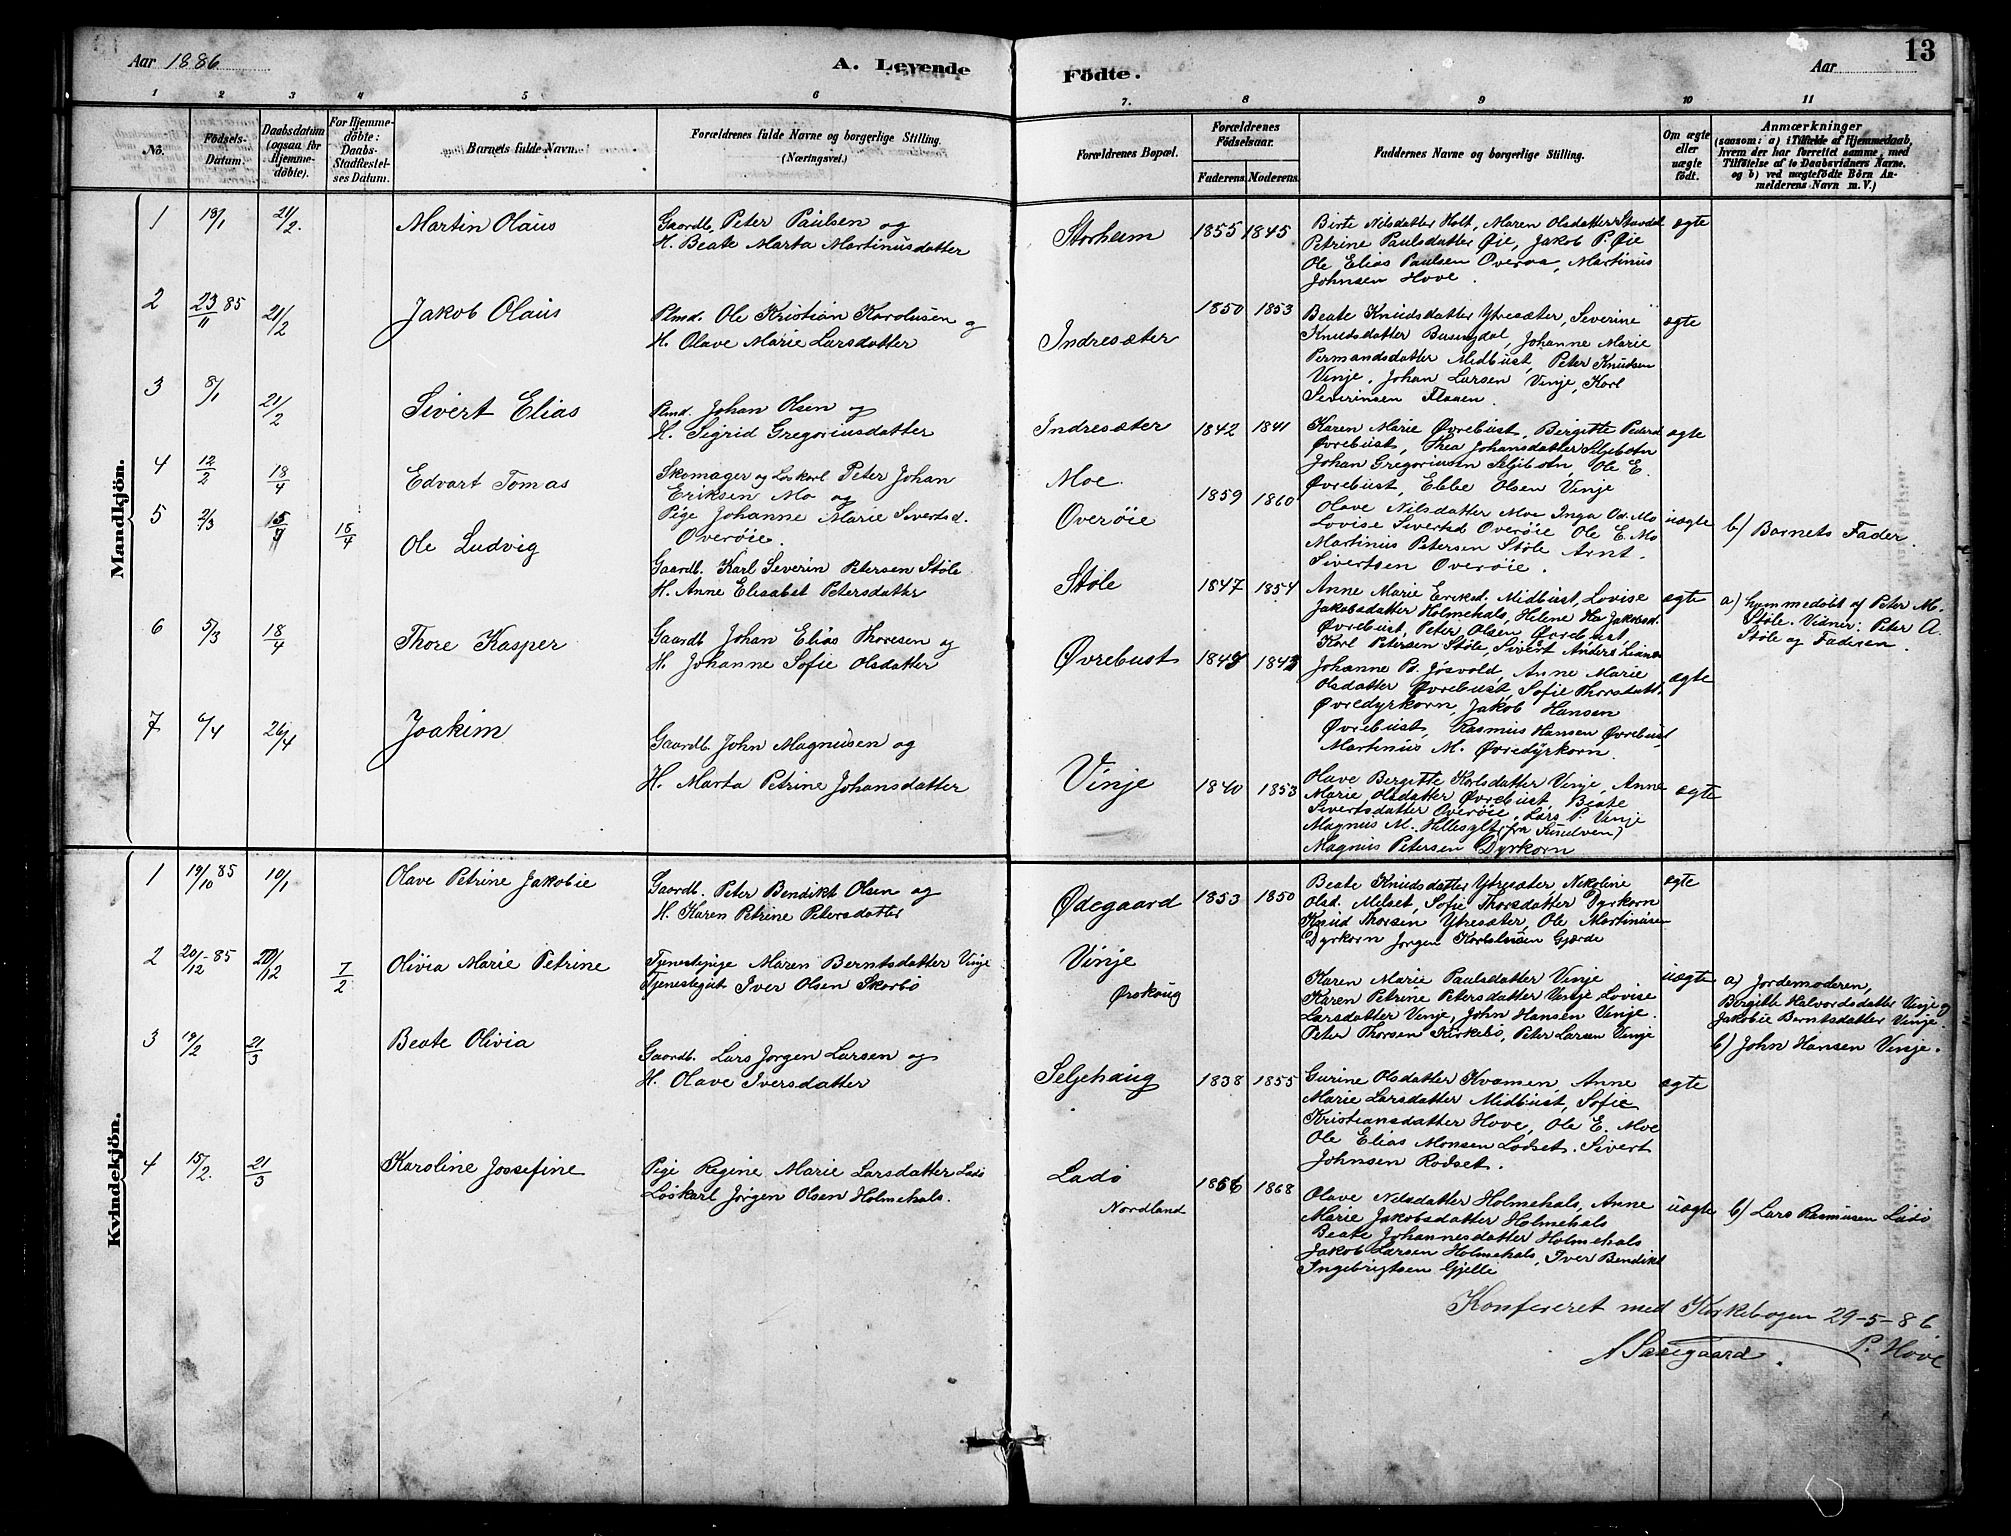 Aar 1886
A. Levende
Födte.
Aar
13
1 2 3 4 5 6
7. 8 9 10 11
No.
Födsels-
Datum.
Daabsdatum
(ogsaa for
Hjemme-
döbte).
For Hjemme-
döbte:
Daabs-
Stadfæstel-
ses Datum.
Barnets fulde Navn.
Forældrenes fulde Navne og borgerlige Stilling.
(Næringsvei.)
Forældrenes Bopæl.
Forældrenes
Födselsaar.
Faderens. Moderens.
Faddernes Navne og borgerlige Stilling.
Om ægte
eller
uægte
födt.
Anmærkninger
(saasom: a) i Tilfælde af Hjemmedaab,
hvem der har forrettet samme, med
Tilföielse af to Daabsvidners Navne,
og b) ved uægtefödte Börn An-
melderens Navn m. V.)
Mandkjön.
1 18/1 21/2. Martin Olaus
Gaardb. Peter Paulsen og
H. Beate Marta Martinusdatter
Storheim 1855 1845
Birte Nilsdatter Holt, Maren Olsdatter
Petrine Paulsdatter Øie, Jakob P. Øie
Ole Elias Paulsen Overaa, Martinus
Johnsen Hove.
ægte
2 23/11 85 21/2 Jakob Olaus
Plmd. Ole Kristian Karolusen og
H. Olave Marie Larsdatter
Indresæter 1850 1853
Beate Knudsdatter Ytresæter, Severine
Knudsdatter Busengdal, Johanne Marie
Permandsdatter Midbust, Peter Knudsen
Vinje, Johan Larsen Vinje, Karl
Severinsen Flaaen.
ægte
3 8/1 21/2 Sivert Elias
Plmd. Johan Olsen og
H. Sigrid Gregoriusdatter
Indresæter 1842 1841
Karen Marie Øvrebust, Bergitte Petersd
Øvrebust, Thea Johansdatter Seljebotn
Johan Gregoriusen Seljebotn, Ole E.
Øvrebust, Ebbe Olsen Vinje
ægte
4 12/2 18/4 Edvart Tomas
Skomager og Løskarl Peter Johan
Eriksen Mo og
Pige Johanne Marie Sivertsd.
Overøie.
Moe
Overøie
1859 1860
Olave Nilsdatter Moe Inga Od. Mo
Lovise Sivertsd Overøie Ole E. Mo
Martinus Petersen Støle Arnt
Sivertsen Overøie.
uægte
b) Barnets Fader.
5 2/3 15/4 Ole Ludvig
Gaardb. Karl Severin Petersen Støle
H. Anne Elisabet Petersdatter
Støle 1847 1854
Anne Marie Eriksd. Midbust, Lovise
Jakobsdatter Holmehals, Helene Ka Jakobsd.
Øvrebust, Peter Olsen Øvrebust
Karl Petersen Støle, Sivert Anders
ægte
a) hjemmedøbt af Peter M.
Støle. Vidner: Peter A.
Støle og Faderen.
6 5/3 18/4 Thore Kasper
Gaardb. Johan Elias Thoresen og
H. Johanne Sofie Olsdatter
Øvrebust
Johanne Pd. Jøsvold, Anne Marie
Olsdatter Øvrebust, Sofie Thorsdatt.
Øvredyrkorn, Jakob Hansen
Øvrebust, Rasmus Hansen Øvrebust
Martinus M. Øvredyrkorn.
ægte
7 6/4 26/4 Joakim
Gaardb. John Magnusen og
H. Marta Petrine Johansdatter
Vinje 1840 1853
Olave Bergitte Karlsdatter Vinje, Anne
Marie Olsdatter Øvrebust, Beate
Sivertsdatter Overøie, Lars P. Vinje
Magnus M. Hellesylt (fra Sundven)
Magnus Petersen Dyrkorn
ægte
Kvindekjön.
1 19/10 85 10/1 Olave Petrine Jakobie
Gaardb. Peter Bendikt Olsen og
H. Karen Petrine Petersdatter
Ødegaard 1853 1850
Beate Knudsdatter Ytresæter, Nikoline
Olsd. Melset, Sofie Thorsdatter Dyrkorn
Knud Thorsen Ytresæter, Ole Martinusen
Dyrkorn Jørgen Karlsen Gjærde
ægte
2 20/12-85 20/12 7/2 Olivia Marie Petrine
Tjenestepige Maren Berntsdatter Vinje
Tjenestegut Iver Olsen Skorbø
Vinje
Ørskoug
Karen Marie Paulsdatter Vinje
Karen Petrine Petersdatter Vinje, Lovise
Larsdatter Vinje, John Hansen Vinje.
Peter Thorsen Kirkebø, Peter Larsen Vinje
uægte
a) Jordemoderen,
Bergitte Halvordsdatter Vinje og
Jakobie Berntsdatter Vinje.
b) John Hansen Vinje.
3 19/2 21/3 Beate Olivia
Gaardb. Lars Jørgen Larsen og
H. Olave Iversdatter
Seljehaug 1838 1855
Gurine Olsdatter Kvamen, Anne
Marie Larsdatter Midbust, Sofie
Kristiansdatter Hove, Ole E. Moe
Ole Elias Monsen Lødset. Sivert
Johnsen Rødset.
ægte
4 15/2. 21/3 Karoline Jossefine
Pige Regine Marie Larsdatter Ladø
Løskarl Jørgen Olsen Holmehals.
Ladø
Nordland
1868
Olave Nilsdatter Holmehals, Anne
Marie Jakobsdatter Holmehals
Beate Johannesdatter Holmehals
Jakob Larsen Holmehals, Iver Bendikt
Ingebrigtsen Gjelle
uægte
b) Lars Rasmusen Ladø
Konfereret med Kirkebogen 29-5-86
P. Hove